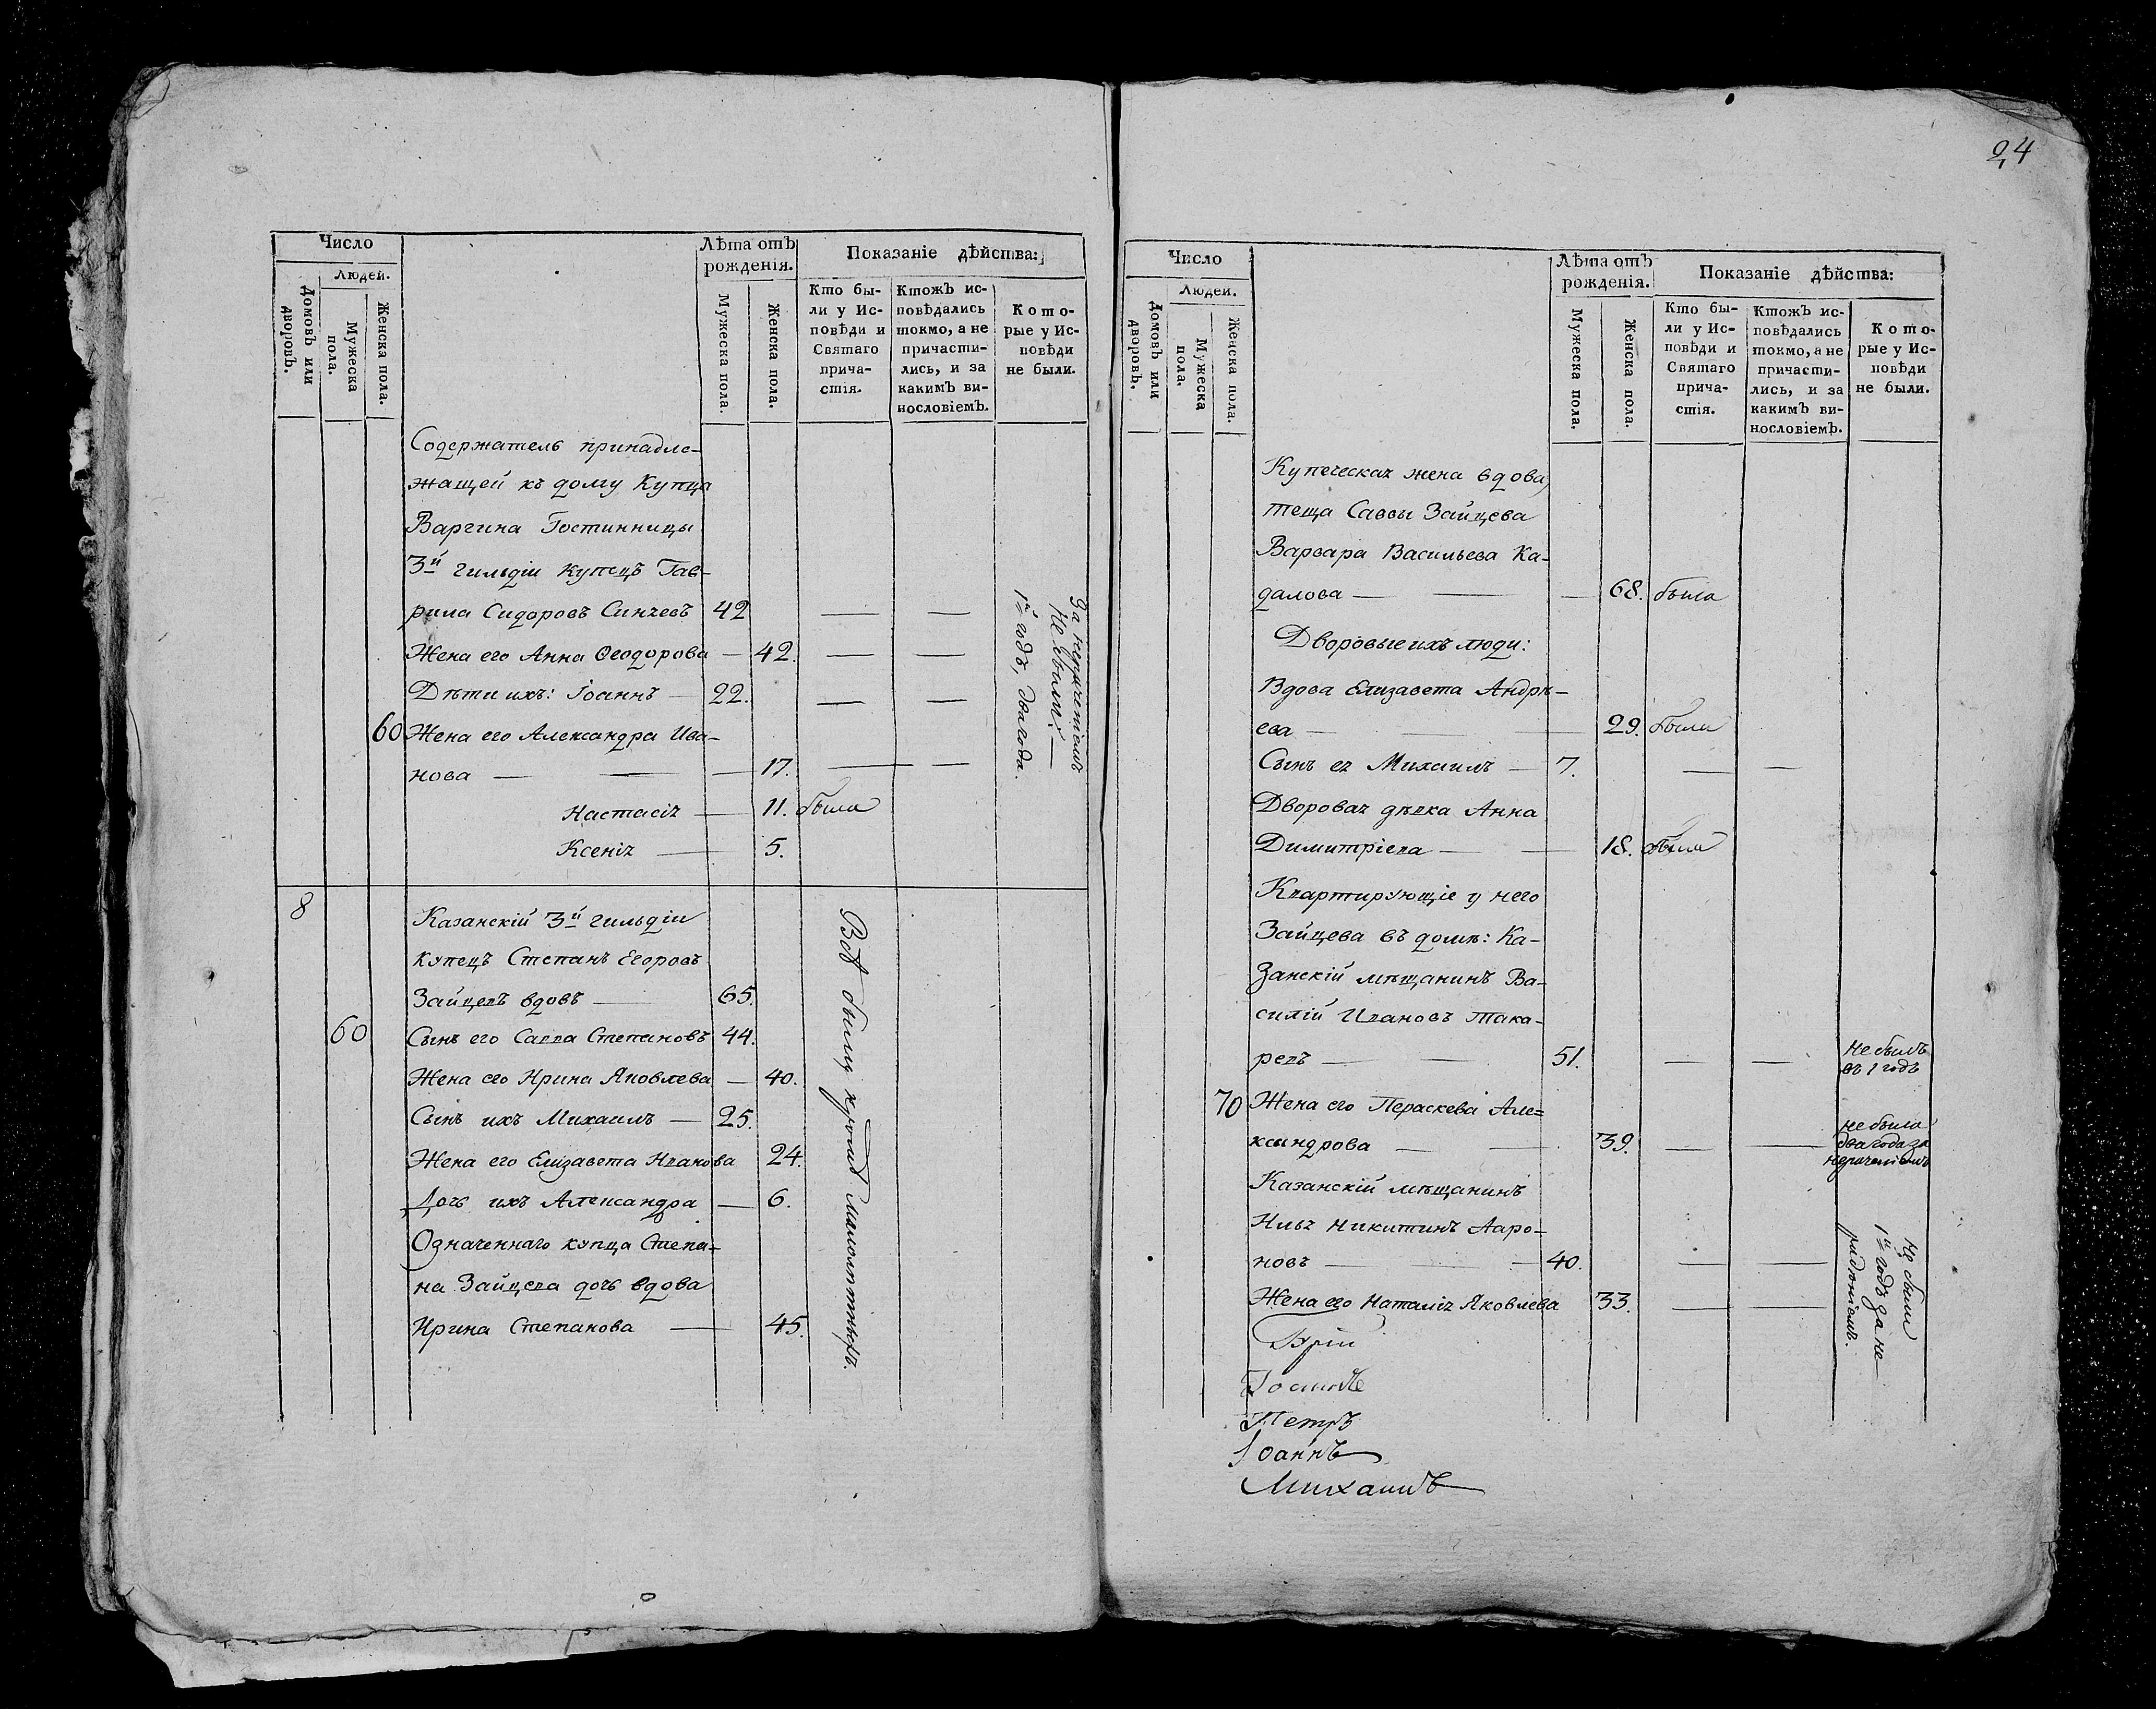 24
Число
Людей.
Домовъ или дворовъ.
Мужеска пола.
Женска пола.
Лѣта отъ рожденія.
Мужеска пола.
Женска пола.
Показаніе дѣйства:
Кто бы-
ли у Ис-
повѣди и
Святаго
прича-
стія.
Ктожъ ис-
повѣдались
токмо, а не
причасти-
лись, и за
какимъ ви-
нословіемъ.
Кото-
рые у Ис-
повѣди
не были.
Содержатель принадле-
жащей къ дому Купца
Варгина Гостинницы
3й гильдіи купецъ Гав-
рила Сидоровъ Синчевъ 42 — —
Жена его Анна Ѳеодорова — 42. — —
Дѣти ихъ: Іоаннъ — 22. — —
60 Жена его Александра Ива-
нова — — — 17. — —
Настасія — 11. была
Ксенія — 5.
За нераченіемъ
не были: —
1й годъ, два года.
8 Казанскій 3й гильдіи
купецъ Степанъ Егоровъ
Зайцевъ вдовъ — 65.
60 Сынъ его Савва Степановъ 44.
Жена его Ирина Яковлева — 40.
Сынъ ихъ Михаилъ — 25.
Жена его Елизавета Иванова 24.
Дочь ихъ Александра — 6.
Означеннаго купца Степа-
на Зайцева дочь вдова
Ирина Степанова — 45.
Всѣ были, кромѣ малолѣтныхъ.
Число
Людей.
Домовъ или дворовъ.
Мужеска пола.
Женска пола.
Лѣта отъ рожденія.
Мужеска пола.
Женска пола.
Показаніе дѣйства:
Кто бы-
ли у Ис-
повѣди и
Святаго
прича-
стія.
Ктожъ ис-
повѣдались
токмо, а не
причасти-
лись, и за
какимъ ви-
нословіемъ.
Кото-
рые у Ис-
повѣди
не были.
Купеческая жена вдова,
теща Саввы Зайцева
Варвара Васильева Ка-
далова — — — 68. была
Дворовые ихъ люди:
Вдова Елизавета Андрѣ-
ева — — — 29. была
Сынъ ея Михаилъ — 7. — —
Дворовая дѣвка Анна
Димитріева — — 18. была
Квартирующіе у него
Зайцева въ домѣ: Ка-
занскій мѣщанинъ Ва-
силій Ивановъ Тока-
ревъ — — 51. — — не былъ
въ 1 годъ
70 Жена его Пераскева Але-
ксандрова — — 39. — — не была
два года за
нераченіемъ
Казанскій мѣщанинъ
Илья Никитинъ Ааро-
новъ — — 40. — —
Жена его Наталія Яковлева 33. — —
не были
1й годъ за не-
радѣніемъ.
Гурій
Петръ
Іоаннъ
Михаилъ